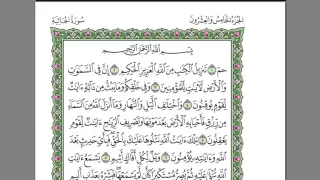 الجزء الخامس والعشرون سورة الجاثية
بِسْمِ ٱللَّهِ ٱلرَّحْمَٰنِ ٱلرَّحِيمِ
حمٓ ۝ تَنزِيلُ ٱلْكِتَٰبِ مِنَ ٱللَّهِ ٱلْعَزِيزِ ٱلْحَكِيمِ ۝ إِنَّ فِى ٱلسَّمَٰوَٰتِ
وَٱلْأَرْضِ لَءَايَٰتٍ لِّلْمُؤْمِنِينَ ۝ وَفِى خَلْقِكُمْ وَمَا يَبُثُّ مِن دَآبَّةٍ ءَايَٰتٌ
لِّقَوْمٍ يُوقِنُونَ ۝ وَٱخْتِلَٰفِ ٱلَّيْلِ وَٱلنَّهَارِ وَمَآ أَنزَلَ ٱللَّهُ مِنَ ٱلسَّمَآءِ
مِن رِّزْقٍ فَأَحْيَا بِهِ ٱلْأَرْضَ بَعْدَ مَوْتِهَا وَتَصْرِيفِ ٱلرِّيَٰحِ ءَايَٰتٌ لِّقَوْمٍ
يَعْقِلُونَ ۝ تِلْكَ ءَايَٰتُ ٱللَّهِ نَتْلُوهَا عَلَيْكَ بِٱلْحَقِّ فَبِأَىِّ حَدِيثٍۭ بَعْدَ
ٱللَّهِ وَءَايَٰتِهِ يُؤْمِنُونَ ۝ وَيْلٌ لِّكُلِّ أَفَّاكٍ أَثِيمٍ ۝ يَسْمَعُ ءَايَٰتِ
ٱللَّهِ تُتْلَىٰ عَلَيْهِ ثُمَّ يُصِرُّ مُسْتَكْبِرًا كَأَن لَّمْ يَسْمَعْهَا فَبَشِّرْهُ بِعَذَابٍ أَلِيمٍ